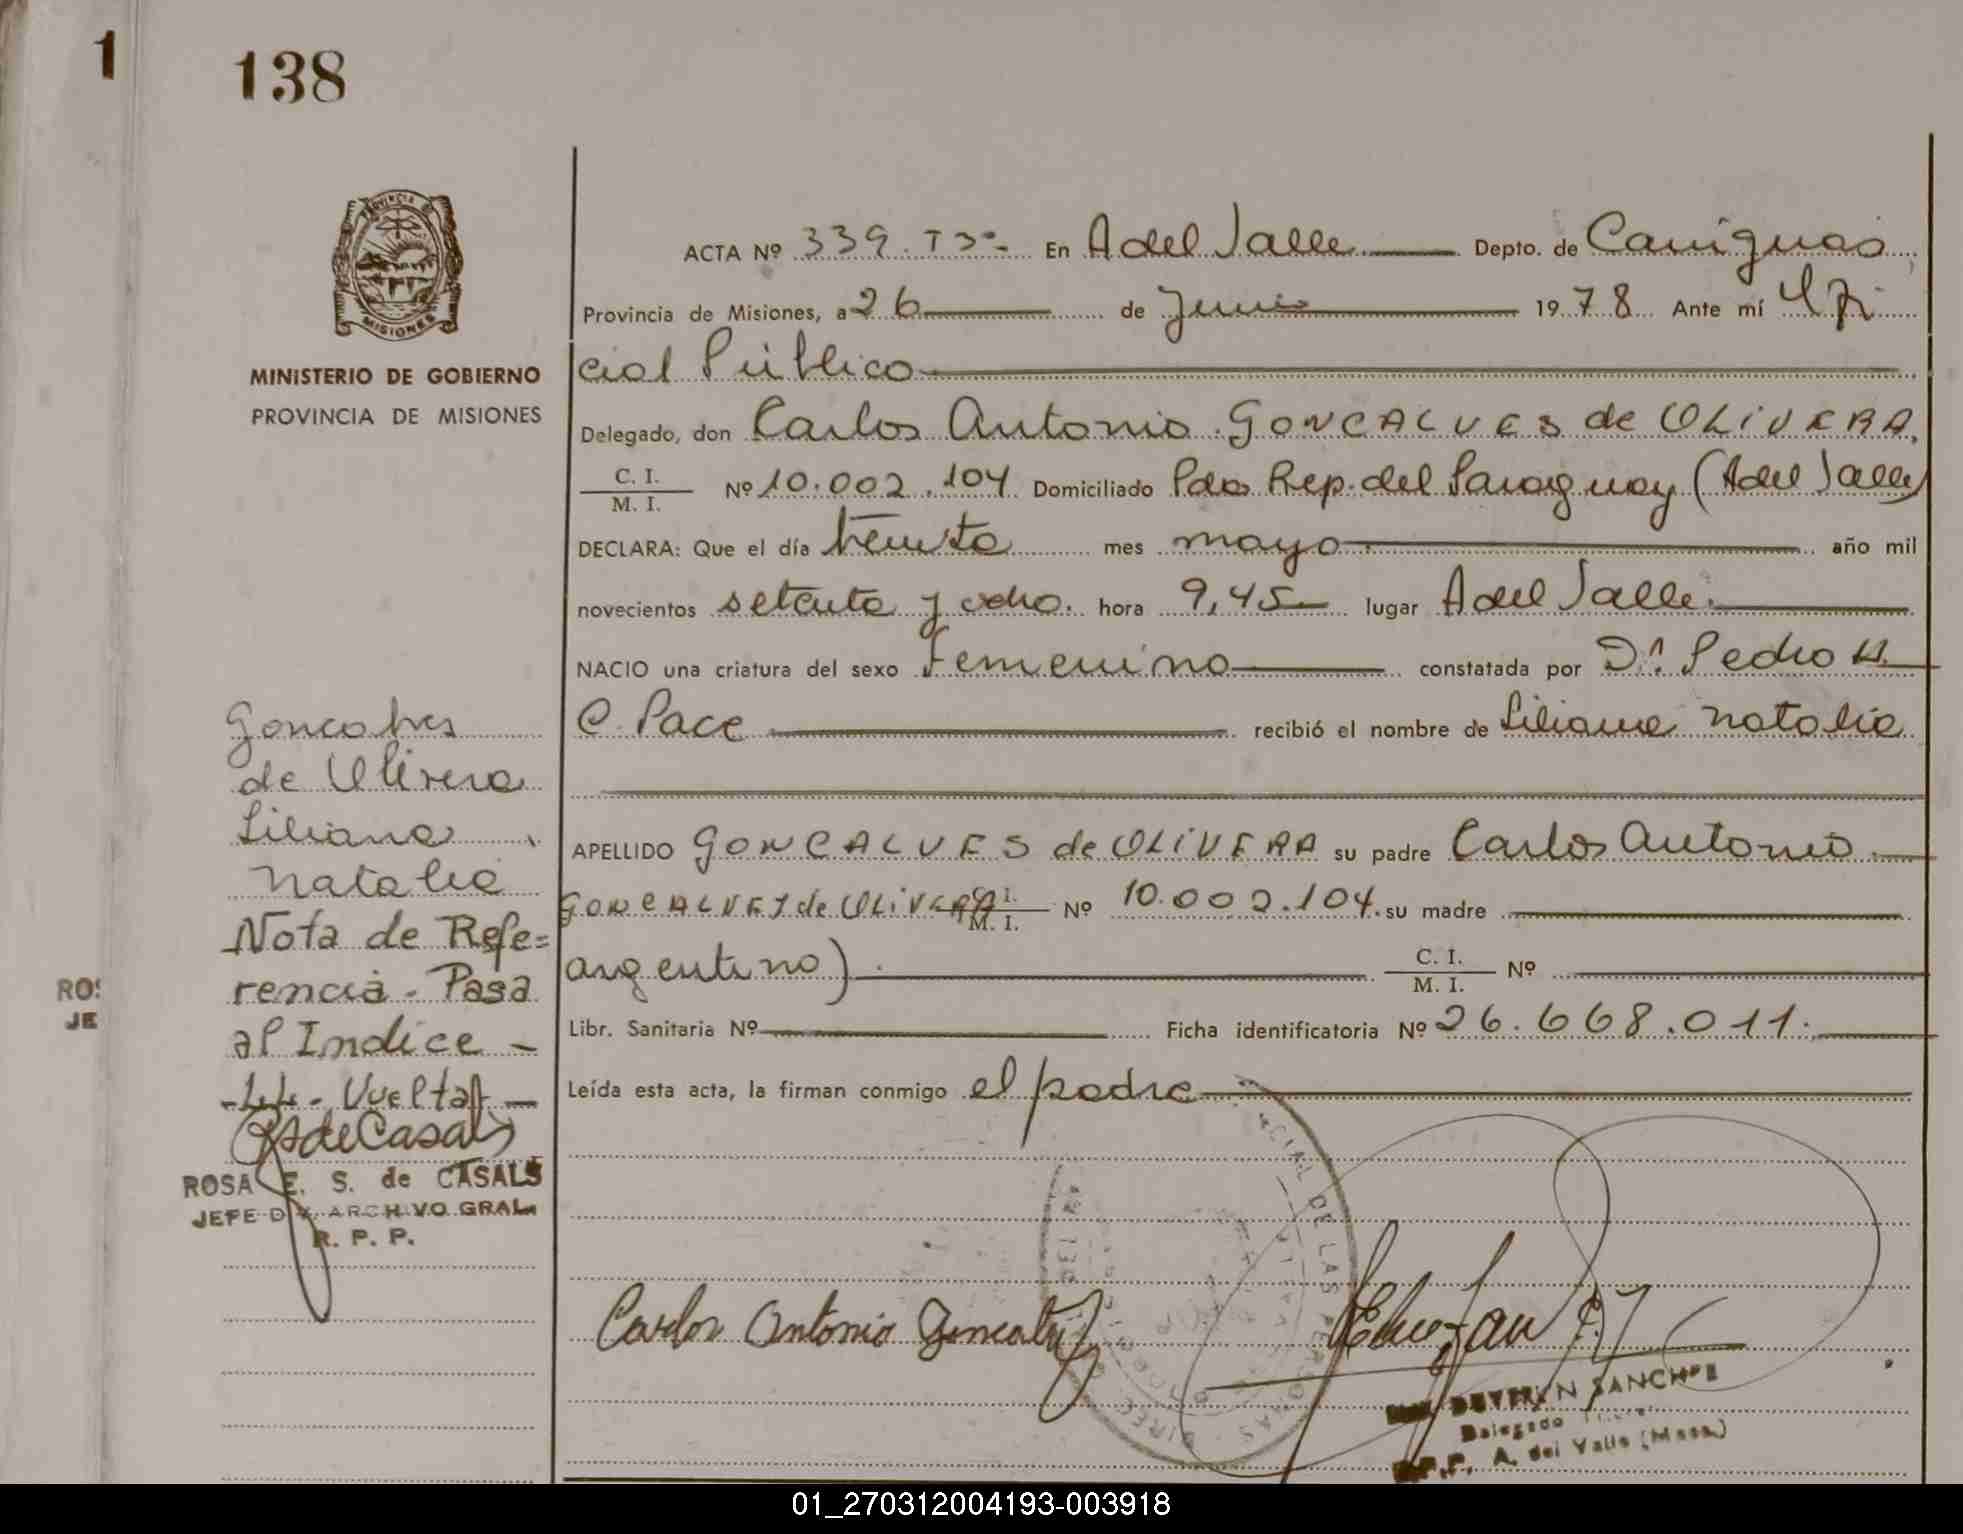 1
138
PROVINCIA DE
MISIONES
MINISTERIO DE GOBIERNO
PROVINCIA DE MISIONES
ACTA Nº 339. Tº 3º En A del Valle Depto. de Cainguas
Provincia de Misiones, a 26 de Junio 1978 Ante mí Ofi
cial Público
Delegado, don Carlos Antonio GONCALVES de OLIVERA,
C. I.
M. I.
Nº 10.002.104 Domiciliado Pdo Rep. del Paraguay (A del Valle)
DECLARA: Que el día treinta mes mayo año mil
novecientos setenta y ocho. hora 9,45 lugar A del Valle.
NACIO una criatura del sexo Femenino constatada por Dr. Pedro H.
C. Pace recibió el nombre de Liliana Natalia
APELLIDO GONCALVES de OLIVERA su padre Carlos Antonio
GONCALVES de OLIVERA C. I. M. I. Nº 10.002.104. su madre
argentino) C. I. M. I. Nº
Libr. Sanitaria Nº Ficha identificatoria Nº 26.668.011.
Leída esta acta, la firman conmigo el padre
Goncalves
de Olivera
Liliana
Natalia
Nota de Refe=
rencia - Pasa
al Indice -
-LL- Vuelta -
R S de Casals
ROSA E. S. de CASALS
JEFE DIV. ARCHIVO GRAL.
R. P. P.
ROS
JE
Carlos Antonio Goncalves
DE LAS PERSONAS
SANCHEZ
Delegado
R.P.P. A. del Valle (Mnes.)
01_270312004193-003918